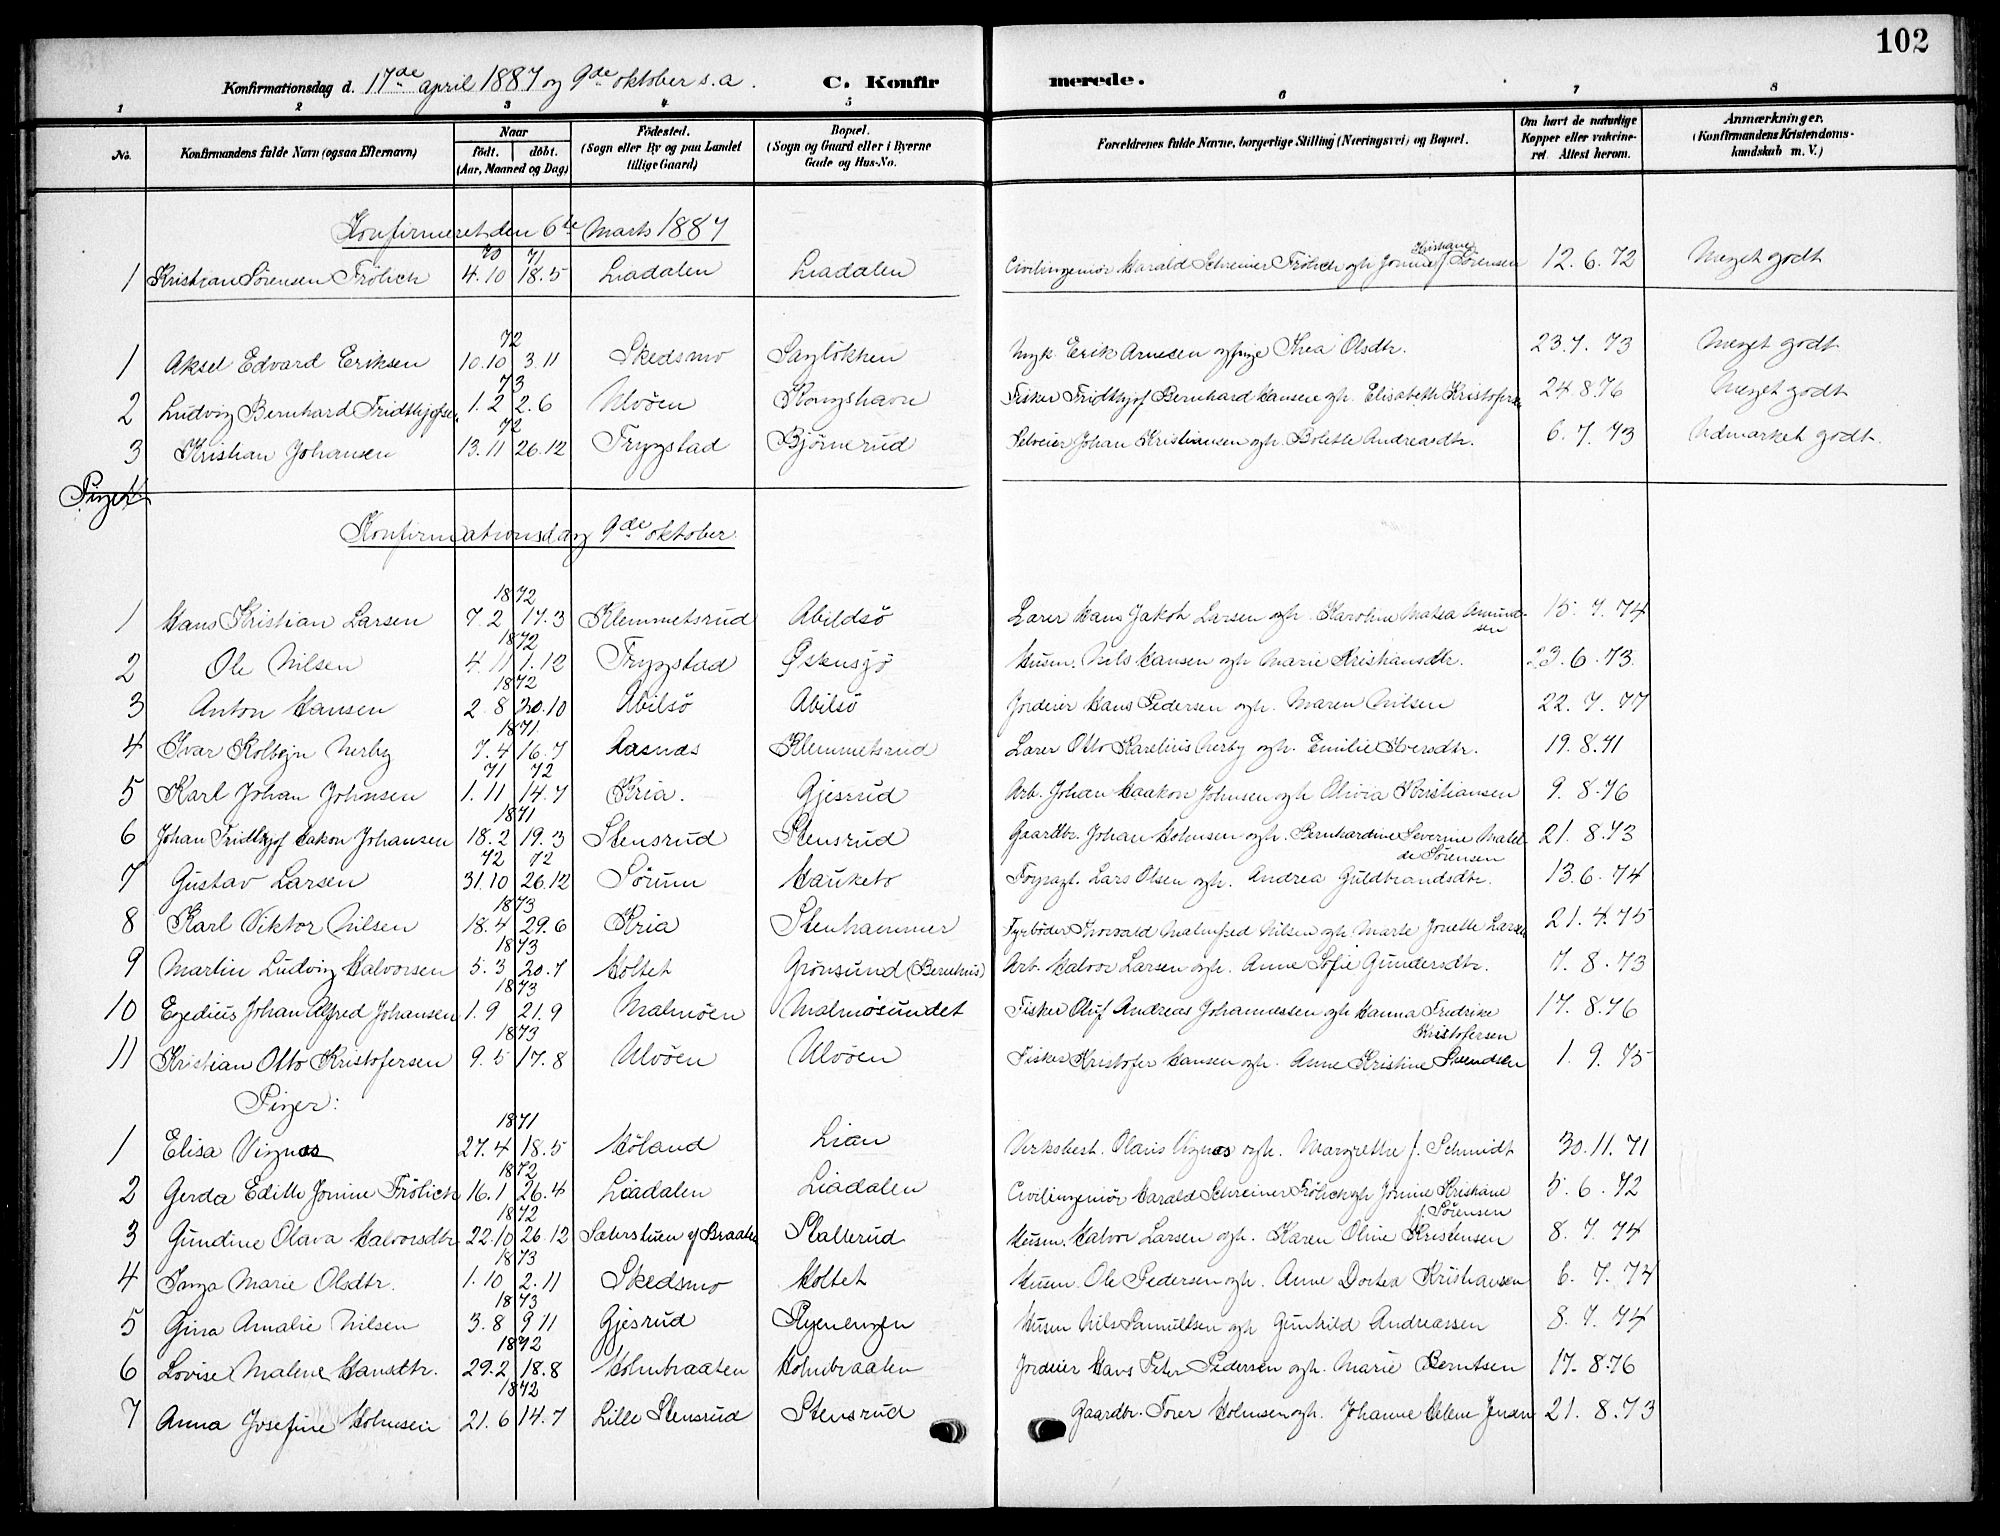 102
Konfirmationsdag d. 17de april 1887 og 9de oktober s.a. C. Konfirmerede.
1 2 3 4 5 6 7 8
No. Konfirmandens fulde Navn (ogsaa Efternavn) Naar födt. döbt. (Aar, Maaned og Dag) Födested. (Sogn eller By og paa Landet tillige Gaard) Bopæl. (Sogn og Gaard eller i Byerne Gade og Hus-No. Forældrenes fulde Navne, borgerlige Stilling (Næringsvei) og Bopæl. Om havt de naturlige Kopper eller vakcineret. Attest herom. Anmærkninger. (Konfirmandens Kristendomskundskab m. V.)
Konfirmeret den 6te Marts 1887
70 71
1 Kristian Sörensen Frölich 4.10 18.5 Liadalen Liadalen Civilingeniör Harald Schreiner Frölich og h. Jonine Kristiane f. Sörensen 12.6.72 Meget godt
72
1 Aksel Edvard Eriksen 10.10 3.11 Skedsmo Saglökken Ungk. Erik Arnesen og pige Thea Olsdtr. 23.7.73 Meget godt
73
2 Ludvig Bernhard Fridthjofsen 1.2 2.6 Ulvöen Kongshavn Fisker Fridthjof Bernhard Hansen og h. Elisabeth Kristofersen 24.8.76 Meget godt
72
3 Kristian Johansen 13.11 26.12 Trygstad Björnerud Selveier Johan Kristiansen og h. Bolette Andreasdtr. 6.7.73 Udmærket godt.
Konfirmationsdag 9de oktober.
1872
1 Hans Kristian Larsen 7.2 17.3 Klemmetsrud Abildsö Lærer Hans Jakob Larsen og h. Karoline Matea Amundsen 15.7.74
1872
2 Ole Nilsen 4.11 1.12 Trygstad Østensjö Husm. Nils Hansen og h. Marie Kristiansdtr. 23.6.73.
1872
3 Anton Hansen 2.8 20.10 Abilsö Abilsö Jordeier Hans Pedersen og h. Maren Nilsen 22.7.77
1871
4 Ivar Kolbejn Nerby 7.4 16.7 Aasnæs Klemmetsrud Lærer Otto Karelius Nerby og h. Emilie Iversdtr. 19.8.71
71 72
5 Karl Johan Johnsen 1.11 14.7 Kria. Gjesrud Arb. Johan Haakon Johnsen og h. Olivia Kristiansen 9.8.76
1871
6 Johan Fridthjof Hakon Johansen 18.2 19.3 Stensrud Stensrud Gaardbr. Johan Holmsen og h. Bernhardine Severine Matilde Sörensen 21.8.73
72 72
7 Gustav Larsen 31.10 26.12 Sörum Hauketo Lars Olsen og h. Andrea Guldbrandsdtr. 13.6.74
1873
8 Karl Viktor Nilsen 18.4 29.6 Kria Stenhammer Fyrböder Thorvald Malmfred Nilsen og h. Marte Jonette Larsen 21.4.75
1873
9 Martin Ludvig Halvorsen 5.3 20.7 Holtet Grönsund (Bernhus) Arb. Halvor Larsen og h. Anne Sofie Gundersdtr. 7.8.73
1873
10 Egedius Johan Alfred Johansen 1.9 21.9 Malmöen Malmösundet Fisker Oluf Andreas Johannessen og h. Hanna Fredrike Kristofersen 17.8.76
1873
11 Kristian Otto Kristofersen 9.5 17.8 Ulvöen Ulvöen Fisker Kristofer Hansen og h. Anne Kristine Svendsen 1.9.75
Piger:
1871
1 Elisa Vignæs 27.4 18.5 Höland Lian Verksbest. Olaus Vignæs og h. Margrethe f. Schmidt 30.11.71
1872
2 Gerda Edith Jonine Frölich 16.1 26.4 Liadalen Liadalen Civilingeniör Harald Schreiner Frölich og h. Jonine Kristiane f. Sörensen 5.6.72
1872
3 Gundine Olava Halvorsdtr 22.10 26.12 Sæterstuen af Braaten Stallerud Husm. Halvor Larsen og h. Karen Oline Kristensen 8.7.74
1873
4 Inga Marie Olsdtr. 1.10 2.11 Skedsmo Holtet Husm. Ole Pedersen og h. Anne Dortea Kristiansen 6.7.74
1873
5 Gina Amalie Nilsen 3.8 9.11 Gjesrud Ryenengen Husm Nils Samuelsen og h Gunhild Andreassen 8.7.74
1872
6 Lovise Malene Hansdtr. 29.2 18.8 Holmbraaten Holmbraaten Jordeier Hans Peter Pedersen og h. Marie Berntsen 17.8.76
1872
7 Anna Josefine Holmsen 21.6 14.7 Lille Stensrud Stensrud Gaardbr. Torer Holmsen og h. Johanne Helene Jensen 21.8.73